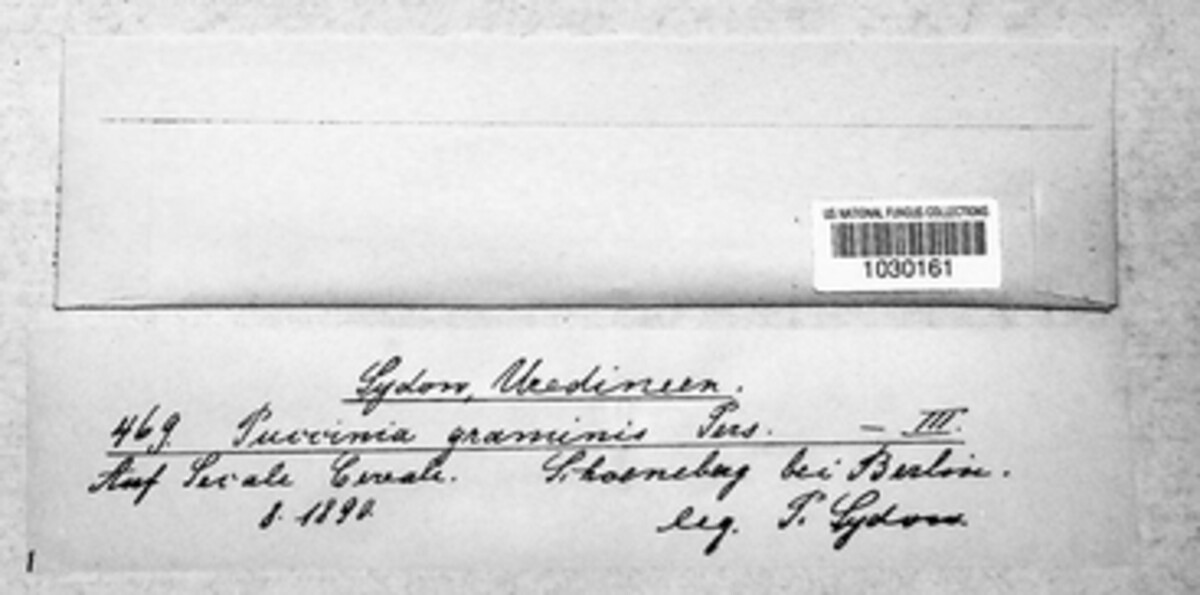 US NATIONAL FUNGUS COLLECTIONS
1030161
Sydow, Uredineen.
469. Puccinia graminis Pers. – III.
Auf Secale Cereale. Schoeneberg bei Berlin.
8. 1890.
leg. P. Sydow.